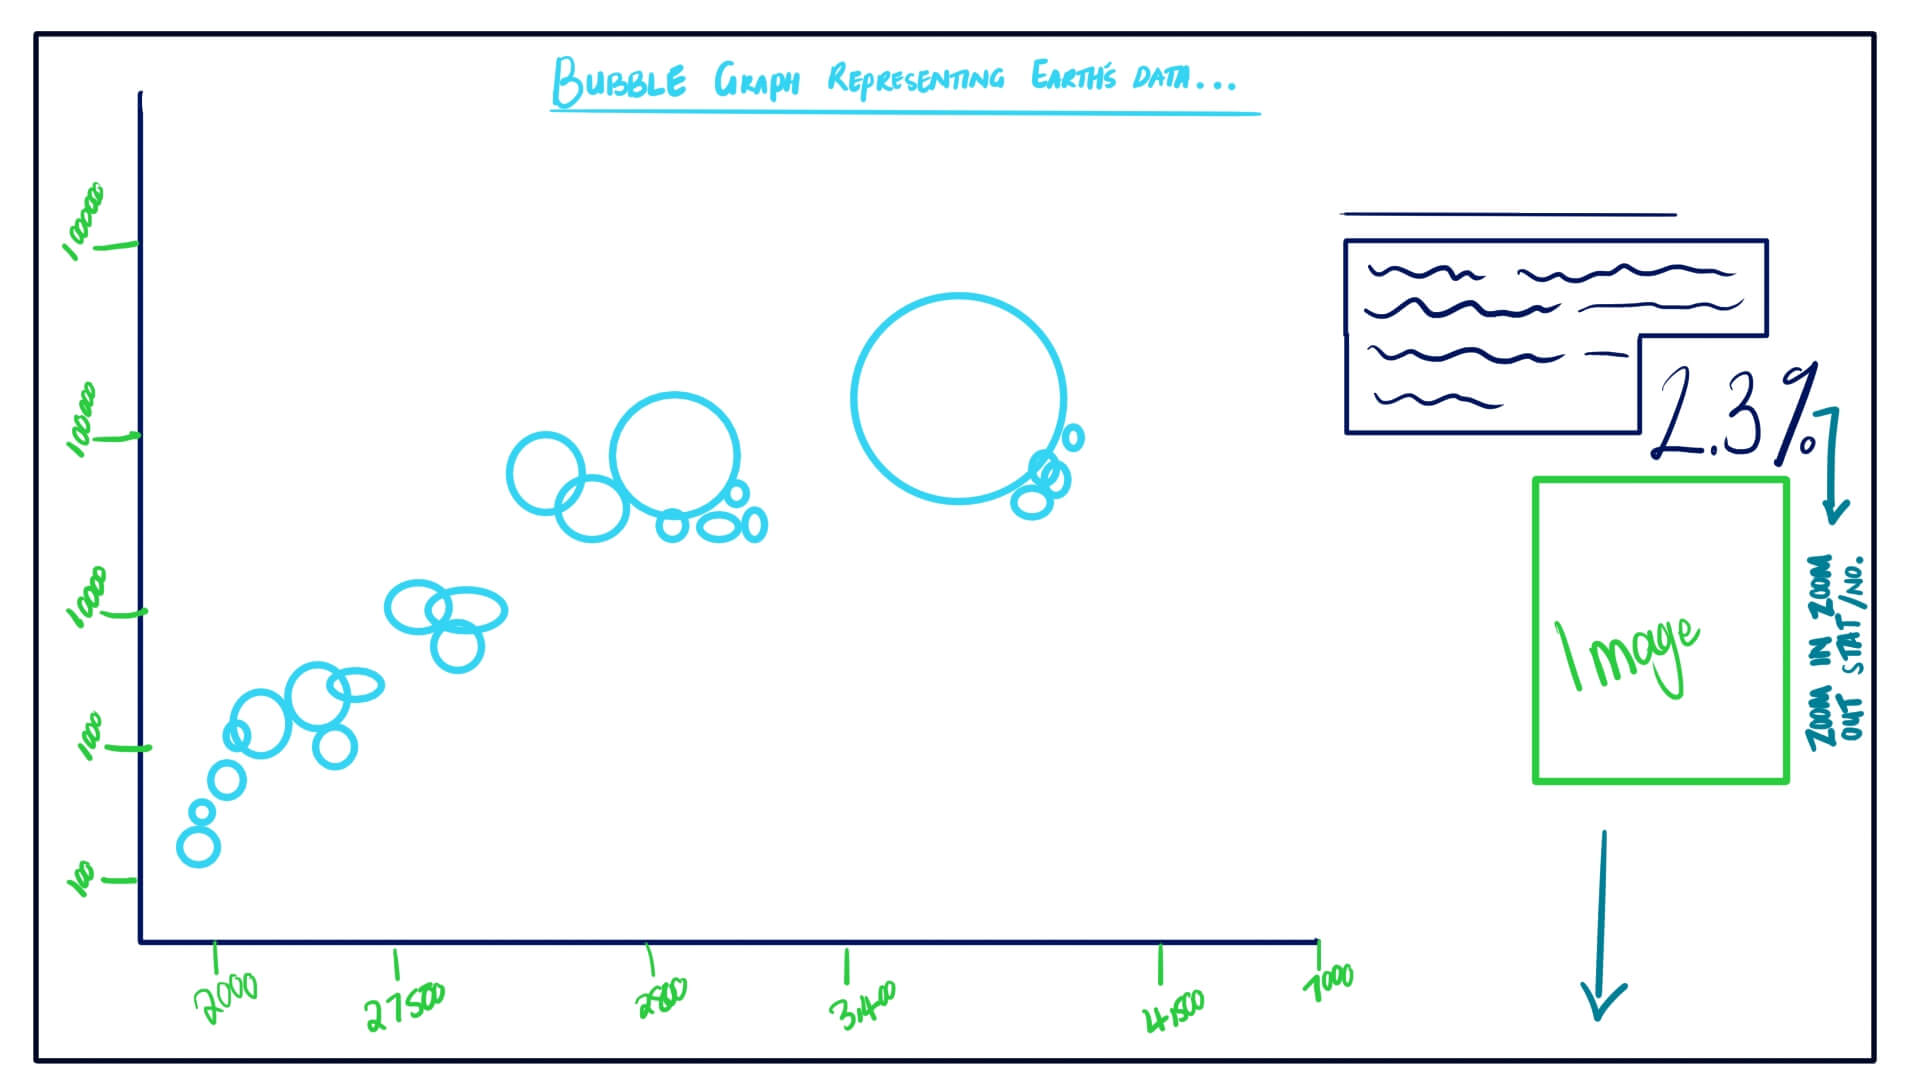 BUBBLE GRAPH REPRESENTING EARTH'S DATA...
1000000
100000
10000
1000
100
2000
27500
2800
3,400
4,500
7000
2.3%
Image
ZOOM IN ZOOM
OUT STAT/NO.